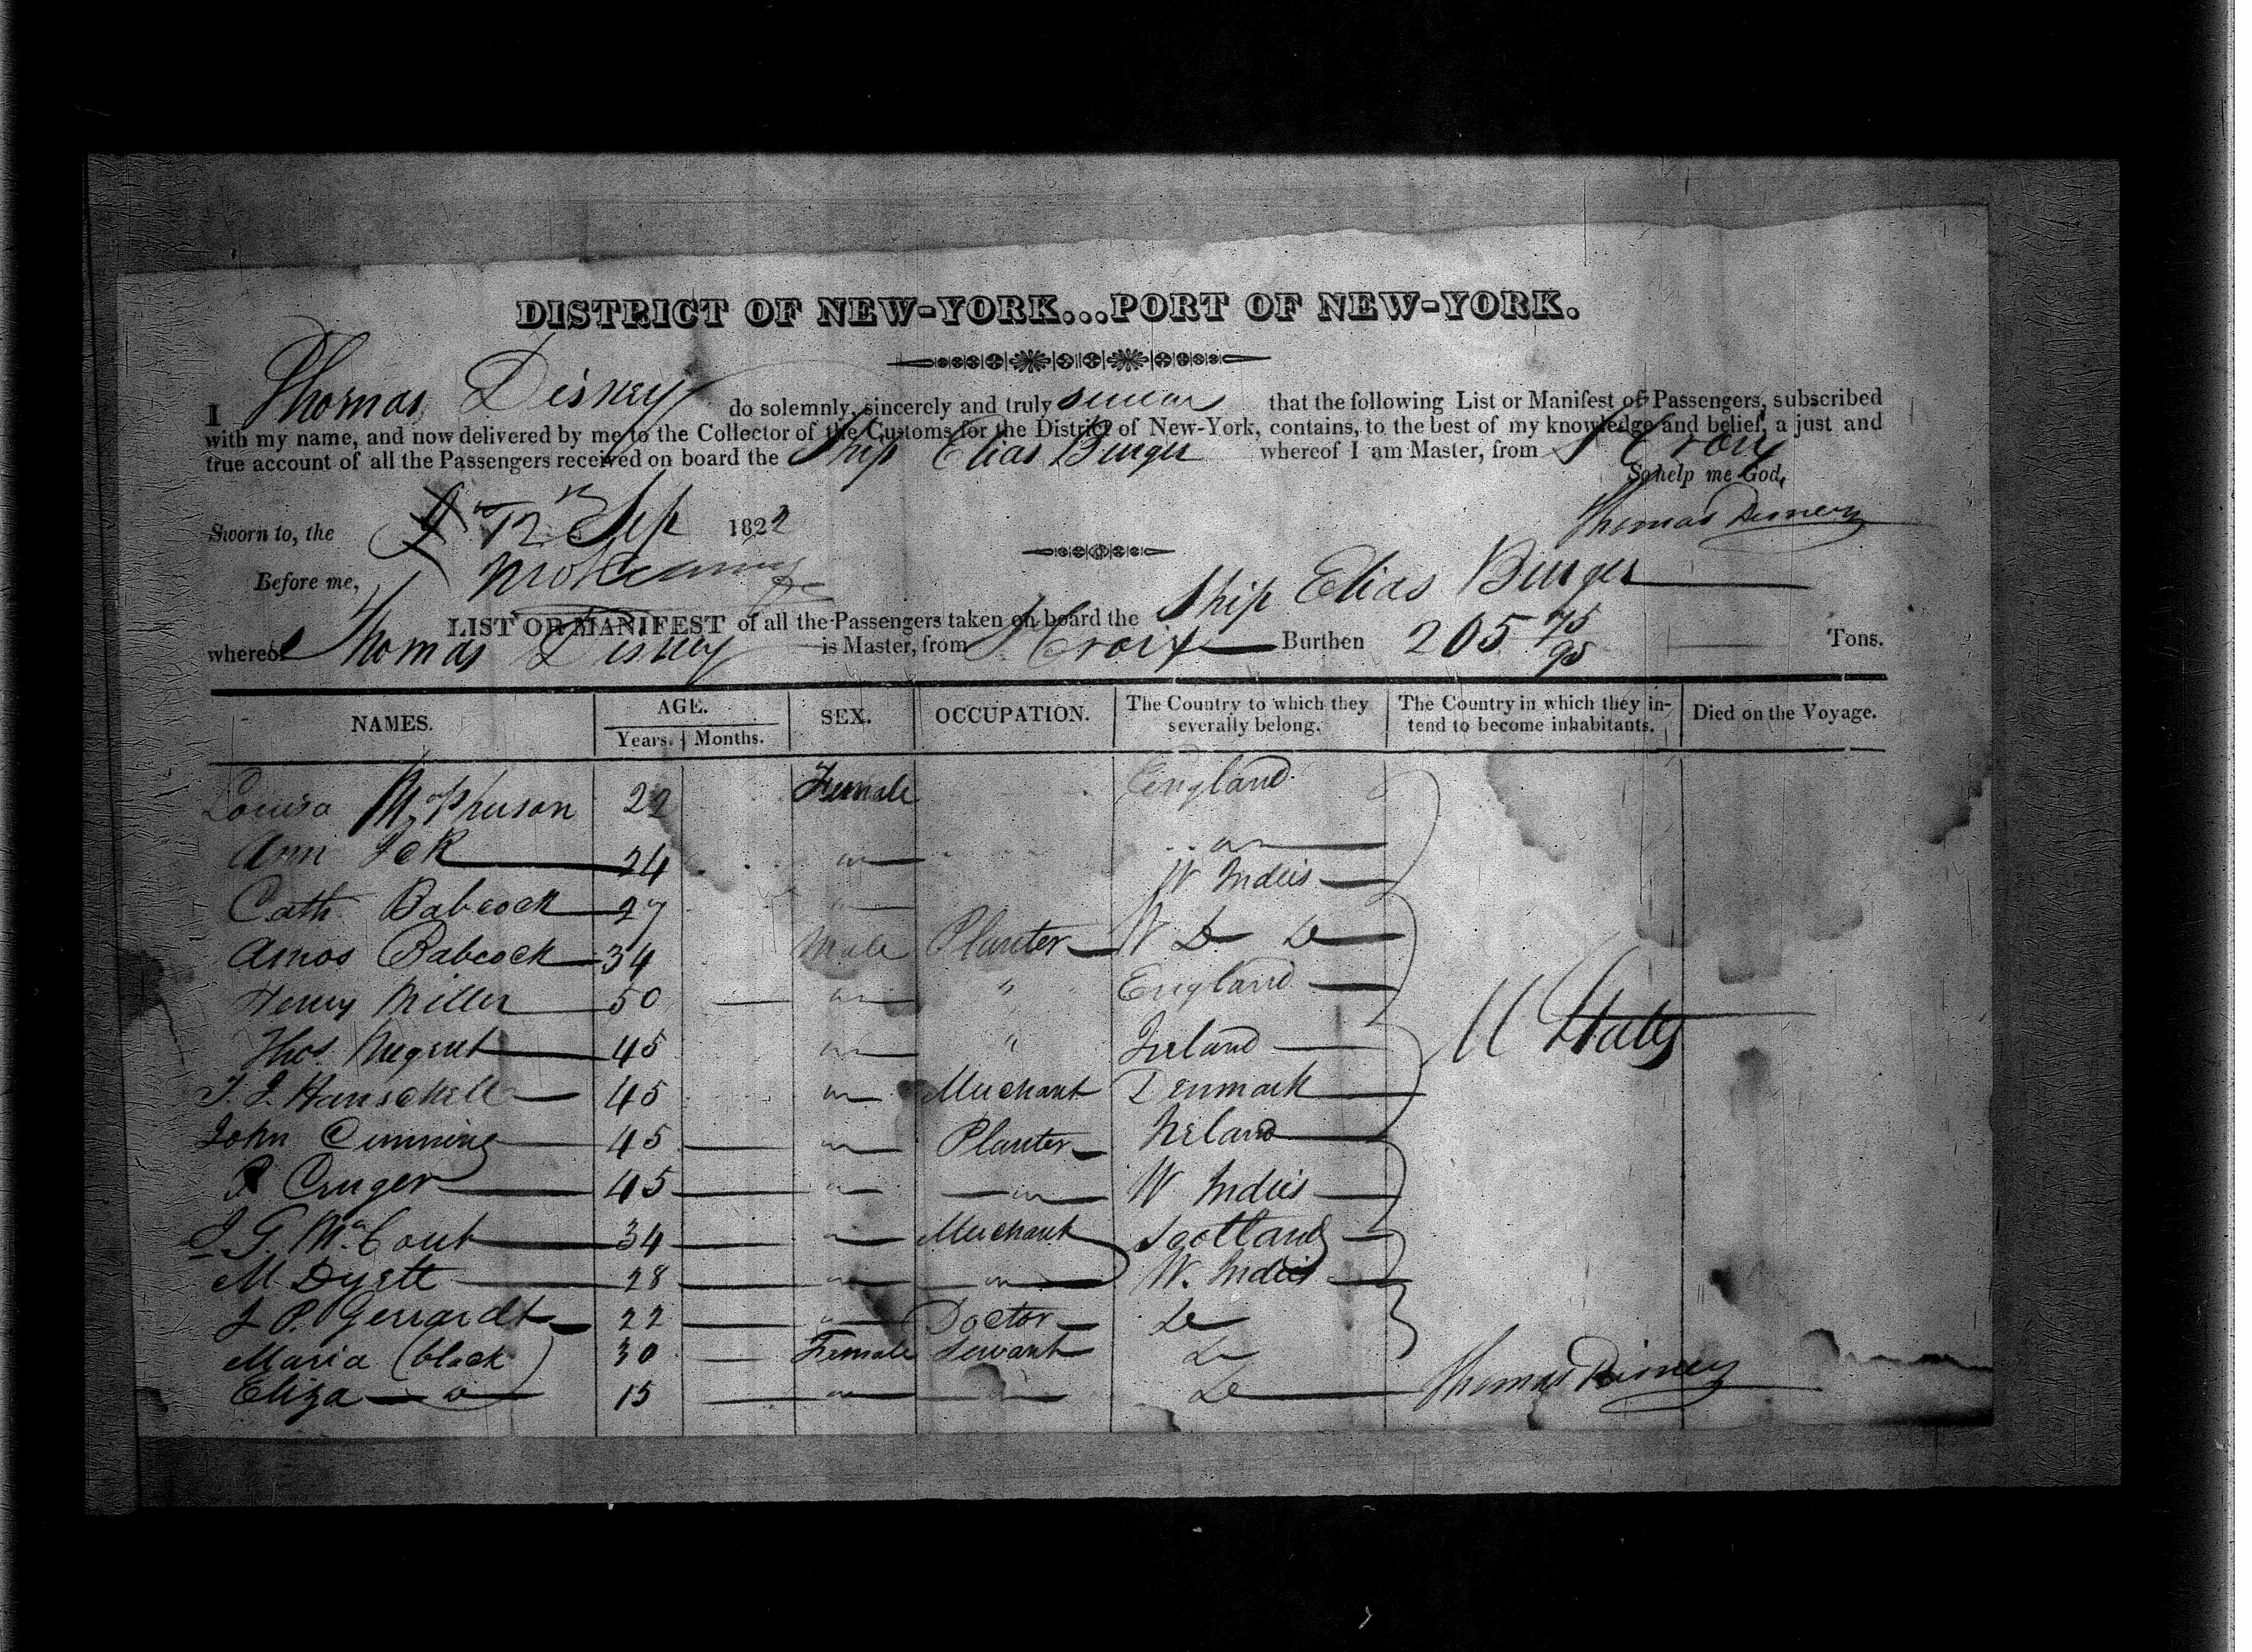 DISTRICT OF NEW-YORK...PORT OF NEW-YORK.
I Thomas Disney do solemnly, sincerely and truly swear that the following List or Manifest of Passengers, subscribed
with my name, and now delivered by me to the Collector of the Customs for the District of New-York, contains, to the best of my knowledge and belief, a just and
true account of all the Passengers received on board the Ship Elias Burger whereof I am Master, from St Croix
So help me God,
Sworn to, the 12 Sep 1822
Thomas Disney
Before me,
LIST OR MANIFEST of all the Passengers taken on board the Ship Elias Burger
whereof Thomas Disney is Master, from St Croix Burthen 205 75/95 Tons.
NAMES. AGE. Years. Months. SEX. OCCUPATION. The Country to which they severally belong. The Country in which they intend to become inhabitants. Died on the Voyage.
Louisa McPherson 22 Female England
Ann 24 " "
Cath Babcock 27 " W Indies
Amos Babcock 34 Male Planter W Do Do
Henry Miller 50 " " England
Thos Nugent 45 " " Ireland U States
J. J. Hanschell 45 " Merchant Denmark
John Cumming 45 " Planter Ireland
P Cruger 45 " " W Indies
J G. McCourt 34 " Merchant Scotland
M Dyett 28 " " W. Indies
J P. Gerrardt 22 " Doctor Do
Maria (black) 30 Female Servant Do
Eliza " 15 " " Do Thomas Disney